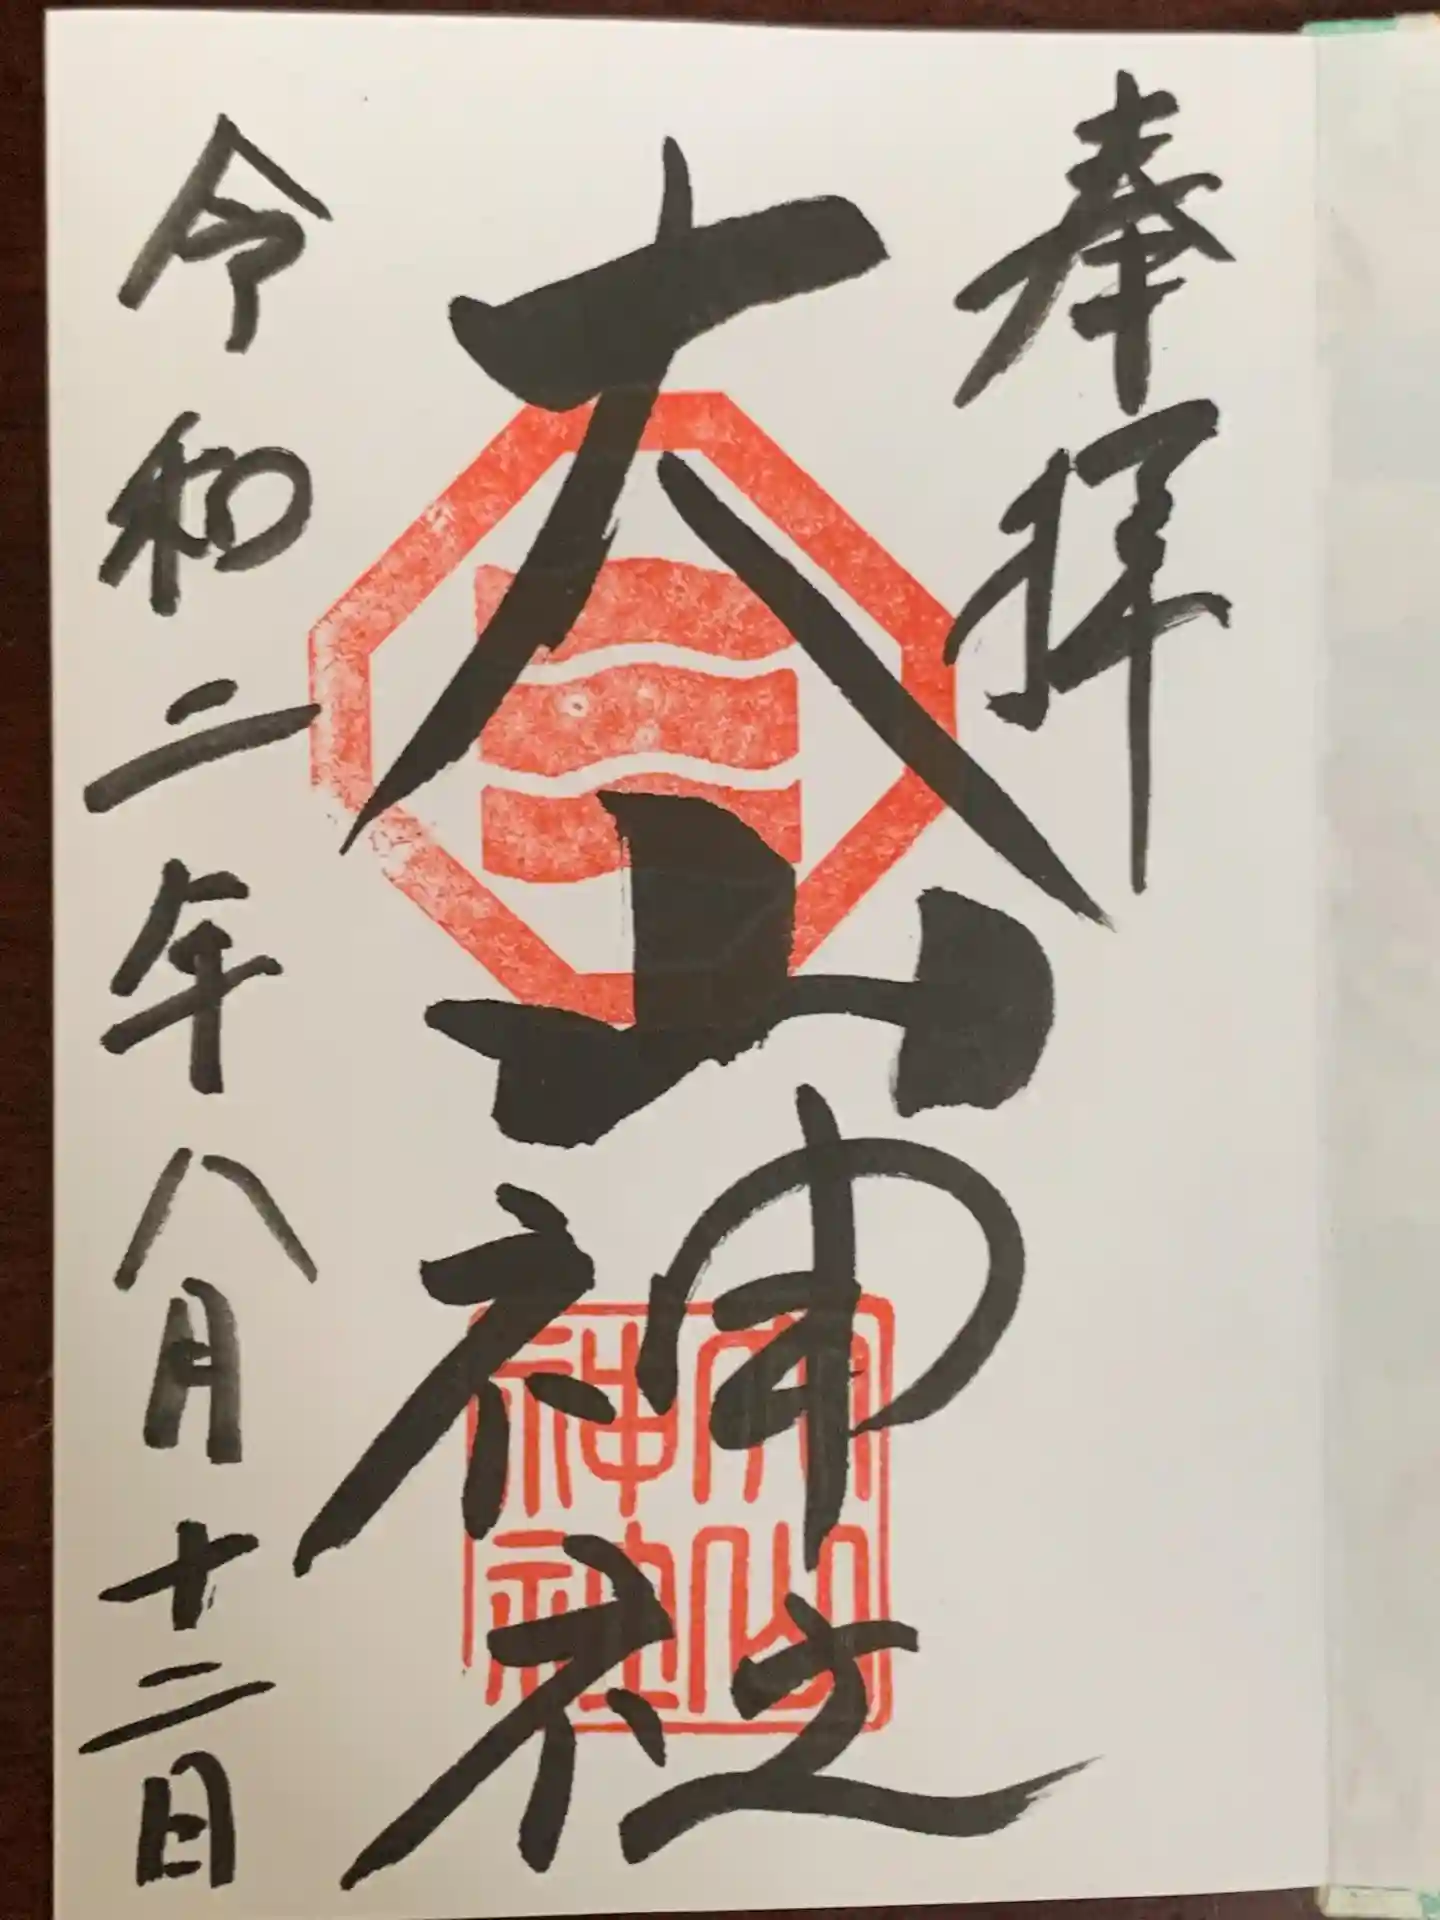 奉拝
大山神社
大山
神社
令和二年八月十二日